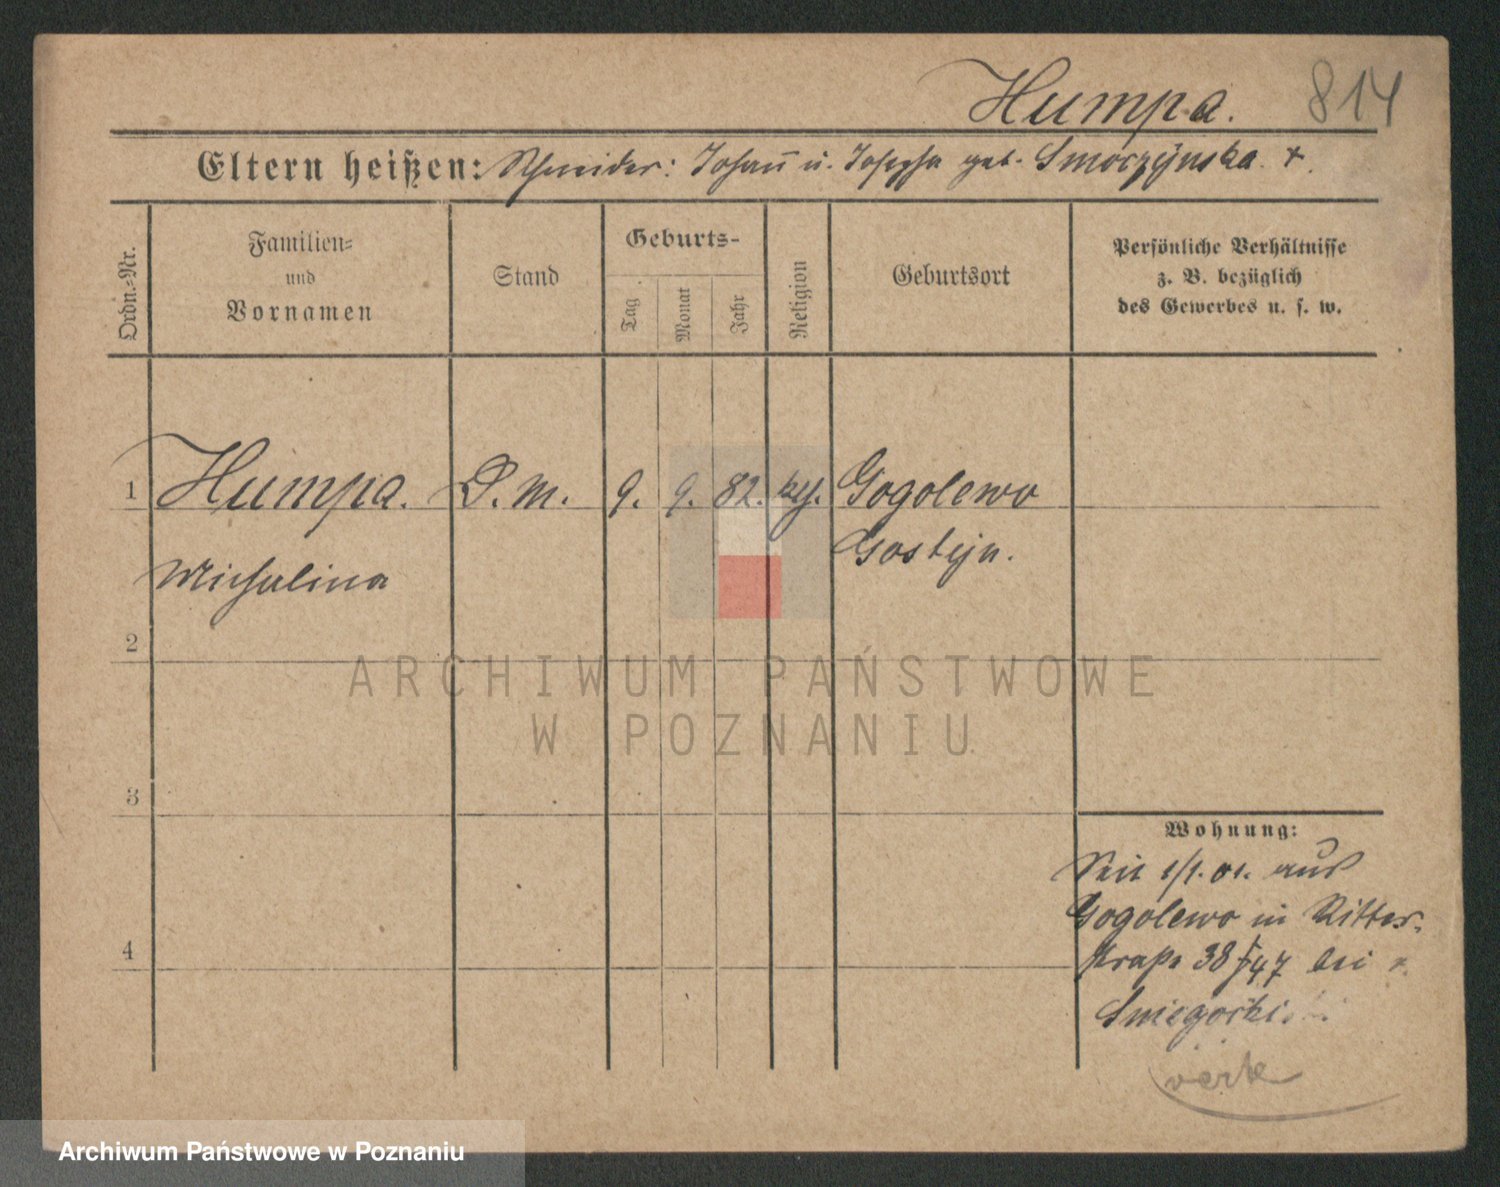 Humpa. 814
Eltern heißen: Schneider: Johann u. Josepha geb. Smoczyńska. +.
Ordn.-Nr.
Familien-
und
Vornamen
Stand
Geburts-
Tag
Monat
Jahr
Religion
Geburtsort
Persönliche Verhältnisse
z. B. bezüglich
des Gewerbes u. s. w.
1 Humpa. D. M. 9. 9. 82. kth. Gogolewo
Michalina Gostyn.
2
3
4
Wohnung:
Seit 1/1. 01. aus
Gogolewo in Ritter-
straße 38 I/47 bei
ARCHIWUM PAŃSTWOWE
W POZNANIU
Archiwum Państwowe w Poznaniu